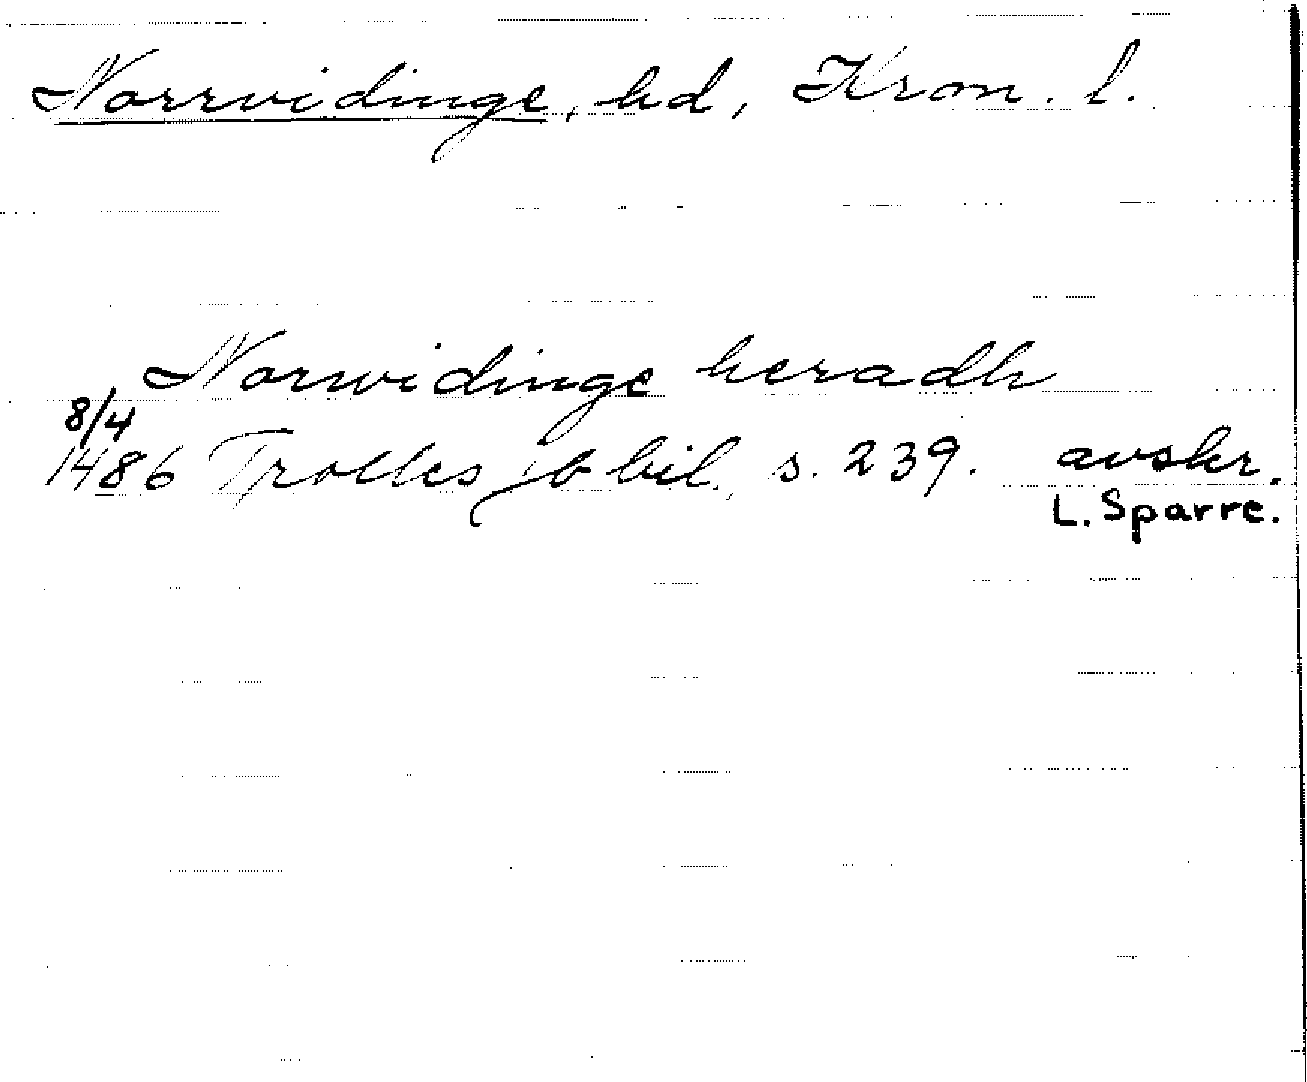 Norrvidinge, hd, Kron. l.
Norwidinge heradh
8/4
1486 Trolles jb bil. s. 239. avskr.
L. Sparre.